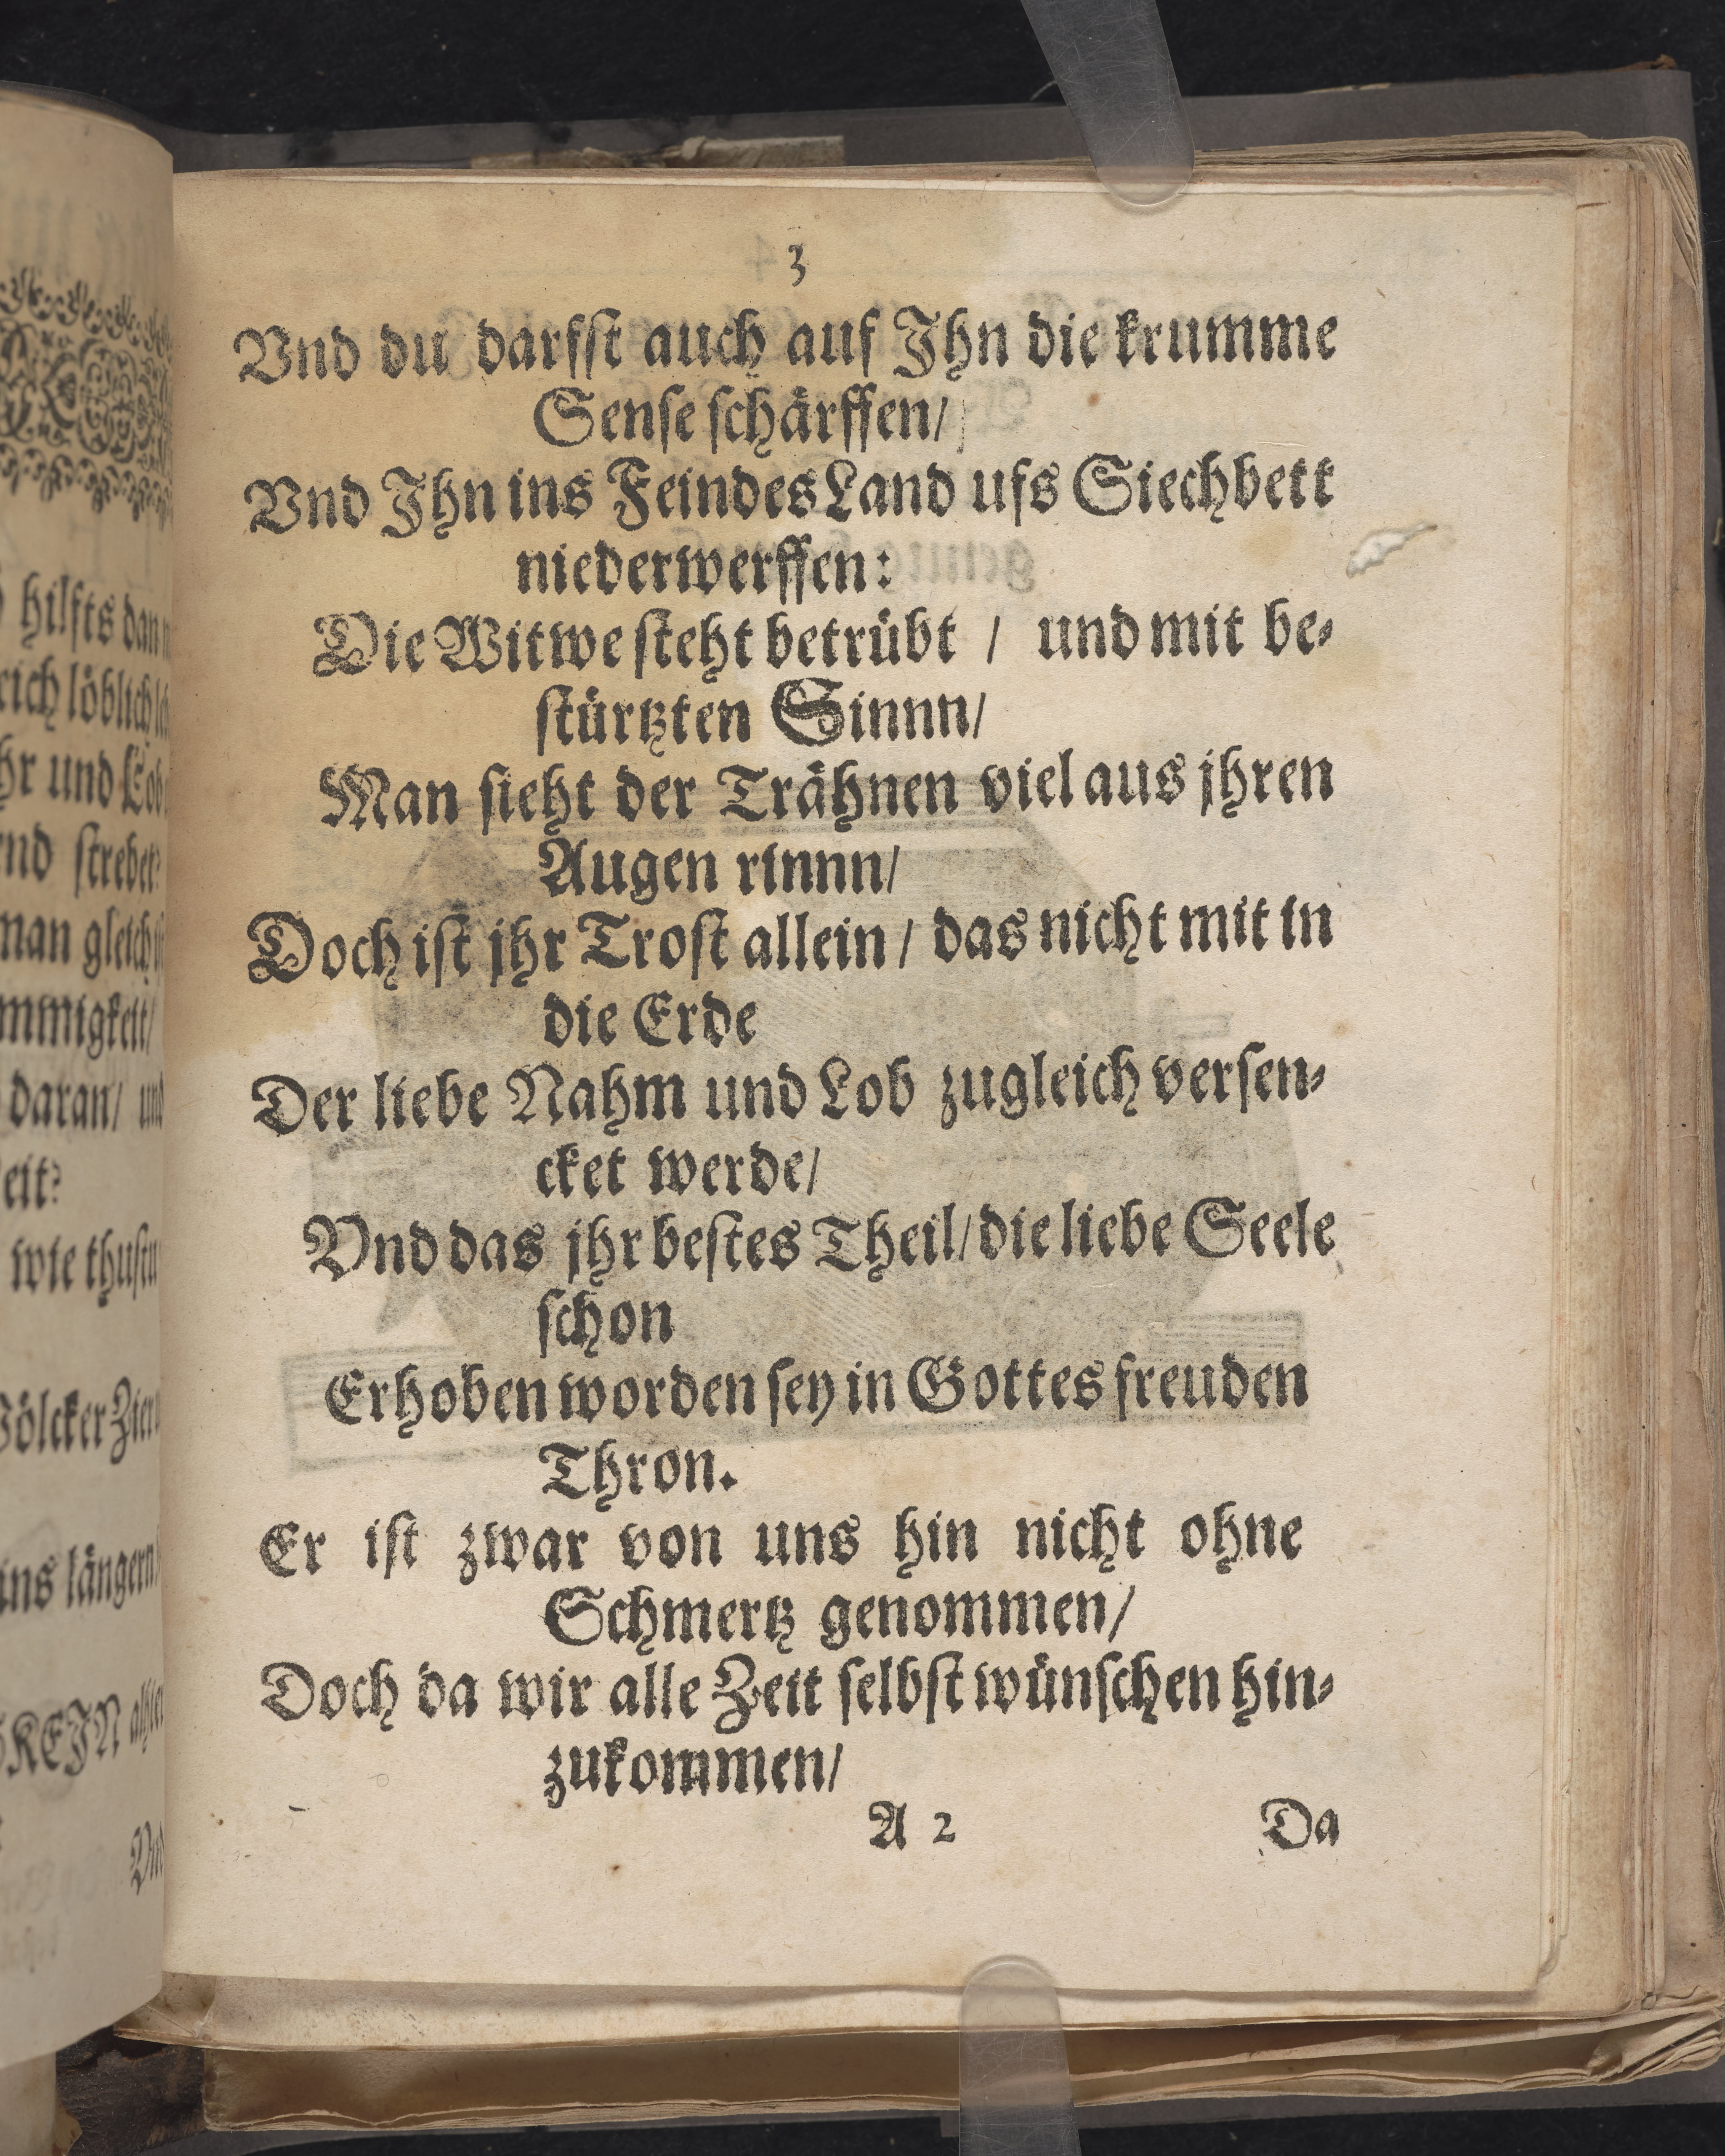 3
Vnd du darfſt auch auf Jhn die krumme
Senſe ſchärffen/
Vnd Jhn ins Feindes Land ufs Siechbett
niederwerffen:
Die Witwe ſteht betrübt / und mit be⸗
ſtürtzten Sinnn/
Man ſieht der Trähnen viel aus jhren
Augen rinnn/
Doch iſt jhr Troſt allein / das nicht mit in
die Erde
Der liebe Nahm und Lob zugleich verſen⸗
cket werde/
Vnd das jhr beſtes Theil/ die liebe Seele
ſchon
Erhoben worden ſey in Gottes freuden
Thron.
Er iſt zwar von uns hin nicht ohne
Schmertz genommen/
Doch da wir alle Zeit ſelbſt wünſchen hin⸗
zukommen/
A 2 Da
hilfts
löblich
und Lob
ſtrebet?
gleich
daran/
wie thuſtu
Völcker Zier
längern